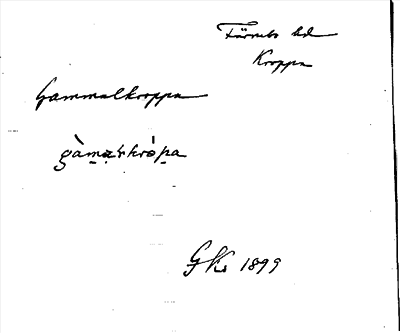 Färnebo hd
Kroppa
Gammalkroppa
gàma̠ŗkrò̍pa
GKs 1899